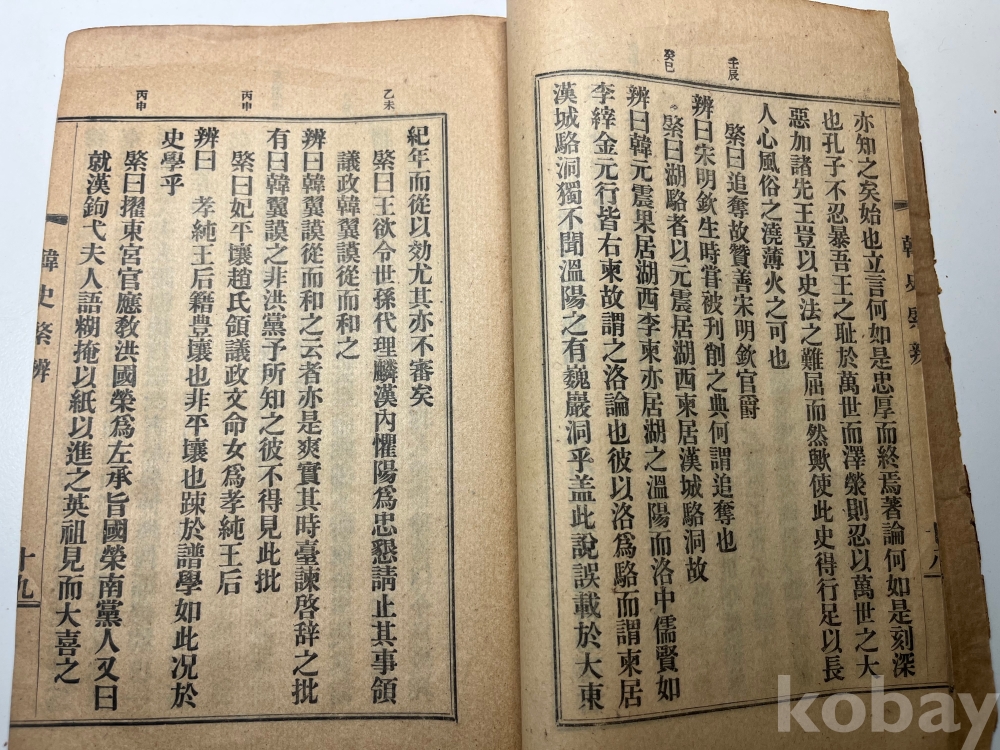 壬辰
癸巳
亦知之矣始也立言何如是忠厚而終焉著論何如是刻深
也孔子不忍暴吾王之耻於萬世而澤榮則忍以萬世之大
惡加諸先王豈以史法之難屈而然歟使此史得行足以長
人心風俗之澆薄火之可也
棨曰追奪故贊善宋明欽官爵
辨曰宋明欽生時甞被刋削之典何謂追奪也
棨曰湖駱者以元震居湖西柬居漢城駱洞故
辨曰韓元震果居湖西李柬亦居湖之溫陽而洛中儒賢如
李縡金元行皆右柬故謂之洛論也彼以洛爲駱而謂柬居
漢城駱洞獨不聞溫陽之有巍巖洞乎盖此說誤載於大東
韓史棨辨
十八
乙未
丙申
丙申
紀年而從以効尤其亦不審矣
棨曰王欲令世孫代理麟漢內懼陽爲忠懇請止其事領
議政韓翼謨從而和之
辨曰韓翼謨從而和之云者亦是爽實其時臺諫啓辞之批
有曰韓翼謨之非洪黨予所知之彼不得見此批
棨曰妃平壤趙氏領議政文命女爲孝純王后
辨曰 孝純王后籍豊壤也非平壤也踈於譜學如此况於
史學乎
棨曰擢東宮官應敎洪國榮爲左承旨國榮南黨人又曰
就漢鉤弋夫人語糊掩以紙以進之英祖見而大喜之
韓史棨辨
十九
kobay